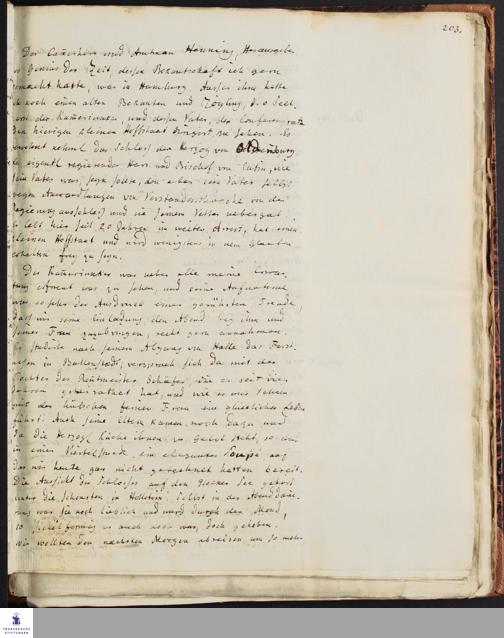 203.
Der Cam̄erherr und Amtman Hennings, Herausgeber
des Genius der Zeit dessen Bekantschaft ich gern
gemacht hatte, war in Hamburg. Ausser ihm hatte
ich noch einen alten Bekanten und Zögling, d. 
der Kam̄erjunker, und dessen Vater, der Conferenzrath
den hiesigen kleinen Hoffstaat dirigirt, zu sehen. Es
bewohnt nehml. das Schloss der Herzog von Oldenburg,
der eigentl. regierender Herr und Bischof von Eutin, wie
sein Vater war, seyn sollte, den aber sein Vater selbst
wegen Anwandlungen von Verstandesschwäche von der
Regierung ausschloss und sie seinem Vetter uebergab.
Er lebt hier seit 20 Jahren in weiter Arrest, hat einen
kleinen Hoffstaat und wird wenigstens in dem Glauben
erhalten frey zu seyn.
Der Kam̄erjunker war ueber alle meine Erwar-
tung erfreut uns zu sehen, und seine Aufnahme
war so sehr der Ausdruck einer gerührten Freude,
dass wir seine Einladung den Abend bey ihm und
seiner Frau zuzubringen, recht gern annahmen.
Er studirte nach seinem Abgang von Halle das Forst-
wesen in Ballenstedt, versprach sich da mit der
Tochter des Rentmeister Schäfer, die er seit vier
Jahren geheirathet hat, und wie es uns schien
mit der hübschen feinen Frau ein glückliches Leben
führt. Auch seine Eltern kamen noch dazu und
da die Herzogl. Küche ihnen zu Gebot steht, so war
in einer Viertelstunde ein elegantes Soupé auf
das wir heute gar nicht gerechnet hatten bereit.
Die Aussicht des Schlosses auf den Ploener See gehört
unter die schönsten in Hollstein. Selbst in der Abenddäme-
rung war sie noch lieblich und ward durch den Mond,
so sichelförmig er auch noch war, doch gehoben.
Wir wollten den nächsten Morgen abreisen um so mehr
FRANCKESCHE
STIFTUNGEN